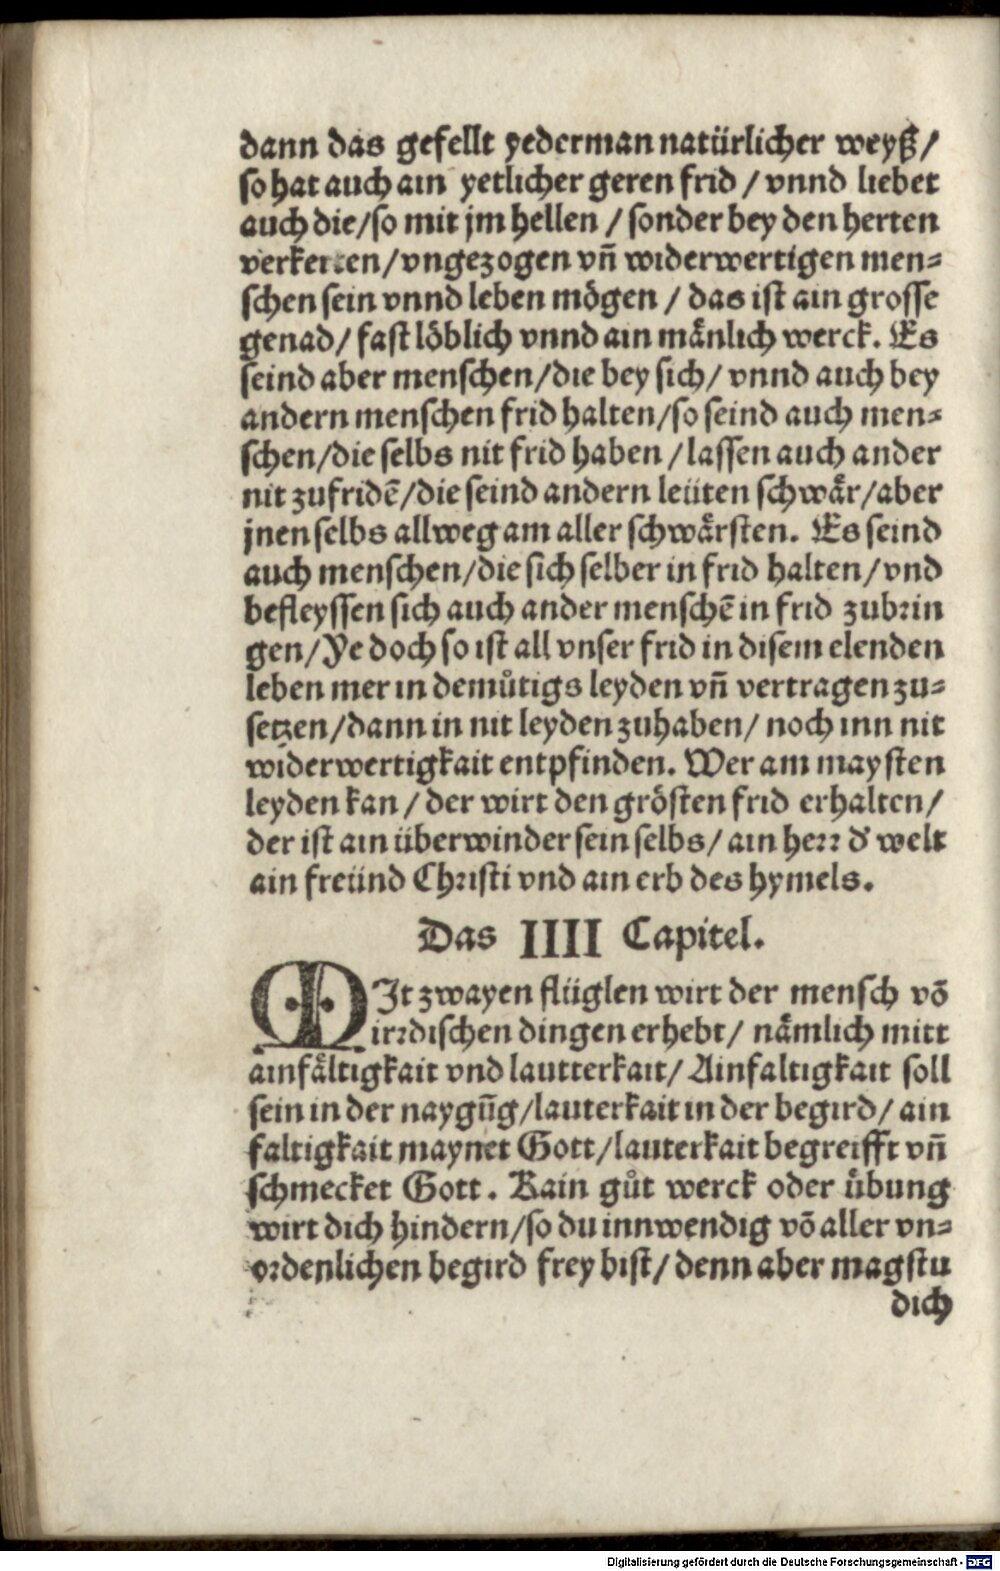 dann das gefellt yederman natürlicher weyß/
so hat auch ain yetlicher geren frid / vnnd liebet
auch die/so mit jm hellen / sonder bey den herten
verkerten/vngezogen vn̄ widerwertigen men⸗
schen sein vnnd leben mögen / das ist ain grosse
genad/ fast löblich vnnd ain mänlich werck. Es
seind aber menschen/die bey sich/ vnnd auch bey
andern menschen frid halten/so seind auch men⸗
schen/die selbs nit frid haben /lassen auch ander
nit zufridē/die seind andern leüten schwär/aber
jnen selbs allweg am aller schwärsten. Es seind
auch menschen/die sich selber in frid halten/vnd
befleyssen sich auch ander menschē in frid zubrin
gen/Ye doch so ist all vnser frid in disem elenden
leben mer in demůtigs leyden vn̄ vertragen zu⸗
setzen/dann in nit leyden zuhaben/ noch inn nit
widerwertigkait entpfinden. Wer am maysten
leyden kan / der wirt den grösten frid erhalten/
der ist ain überwinder sein selbs/ ain herr d' welt
ain freünd Christi vnd ain erb des hymels.
Das IIII Capitel.
MIt zwayen flüglen wirt der mensch vō
irrdischen dingen erhebt/ nämlich mitt
ainfältigkait vnd lautterkait/ Ainfaltigkait soll
sein in der naygūg/lauterkait in der begird/ ain
faltigkait maynet Gott/lauterkait begreifft vn̄
schmecket Gott. Kain gůt werck oder übung
wirt dich hindern/so du innwendig vō aller vn⸗
ordenlichen begird frey bist/ denn aber magstu
dich
Digitalisierung gefördert durch die Deutsche Forschungsgemeinschaft - DFG